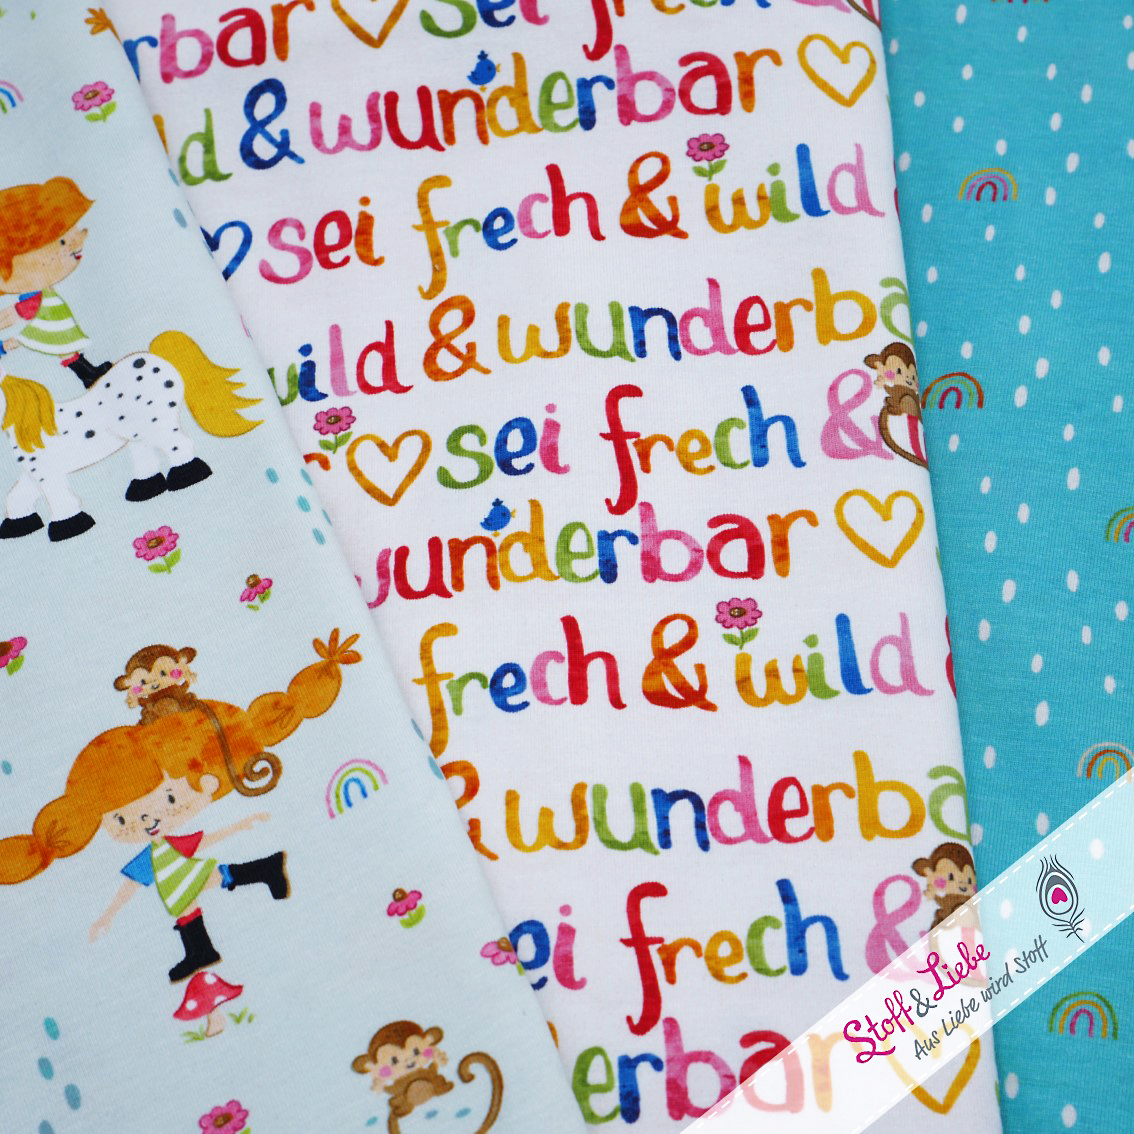 rbar sei frech
ld & wunderbar
sei frech & wild
wild & wunderba
r sei frech &
wunderbar
frech & wild
& wunderba
ei frech &
erbar
Stoff & Liebe
Aus Liebe wird Stoff